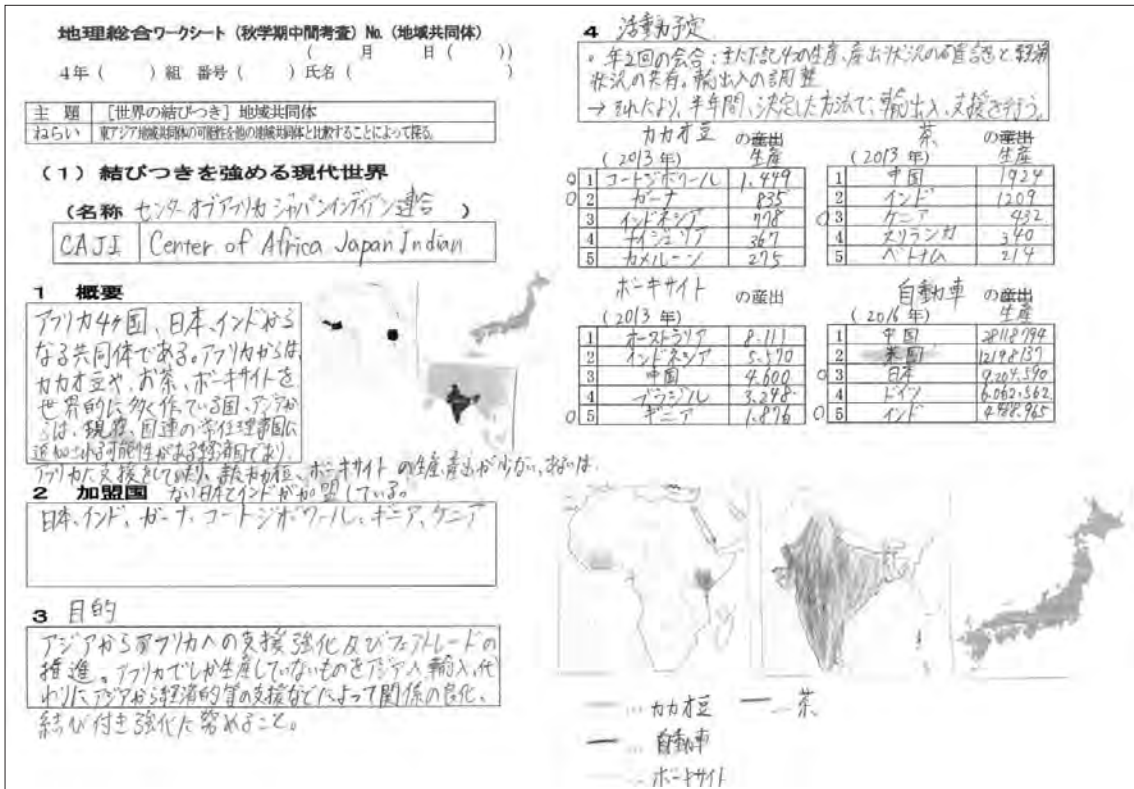 地理総合ワークシート (秋学期中間考査) No. (地域共同体)
( 月 日 ( ))
4年 ( ) 組 番号 ( ) 氏名 ( )
主 題 [世界の結びつき] 地域共同体
ねらい 東アジア地域共同体の可能性を他の地域共同体と比較することによって探る。
(1) 結びつきを強める現代世界
(名称 センターオブアフリカジャパンインディアン連合 )
CAJI Center of Africa Japan Indian
1 概要
アフリカ4ヶ国、日本、インドから
なる共同体である。アフリカからは、
カカオ豆や、お茶、ボーキサイトを
世界的に多く作っている国、アジアか
らは、現在、国連の常任理事国に
追加される可能性がある経済国であり、
アフリカに支援をしていたり、またカカオ豆、ボーキサイトの生産、産出が少ない、あるいは
ない日本とインドが加盟している。
2 加盟国
日本、インド、ガーナ、コートジボワール、ギニア、ケニア
3 目的
アジアからアフリカへの支援強化及びフェアトレードの
推進。アフリカでしか生産していないものをアジアへ輸入、代
わりにアジアから経済的等の支援などによって関係の良化、
結び付き強化に努めること。
4 活動予定
・年2回の会合:主に下記4つの生産、産出状況の確認と経済
状況の共有。輸出入の調整
→ それにより、半年間、決定した方法で、輸出入、支援を行う。
カカオ豆 の産出
(2013年) 生産
○ 1 コートジボワール 1,449
○ 2 ガーナ 835
3 インドネシア 778
4 ナイジェリア 367
5 カメルーン 275
茶 の産出
(2013年) 生産
1 中国 1924
2 インド 1209
○ 3 ケニア 432
4 スリランカ 340
5 ベトナム 214
ボーキサイト の産出
(2013年)
1 オーストラリア 8.111
2 インドネシア 5.570
3 中国 4.600
4 ブラジル 3.248
○ 5 ギニア 1.876
自動車 の産出
(2016年) 生産
1 中国 28118794
2 米国 12198137
○ 3 日本 9.204.590
4 ドイツ 6.062.562
○ 5 インド 4.488.965
… カカオ豆
… 茶
… 自動車
… ボーキサイト